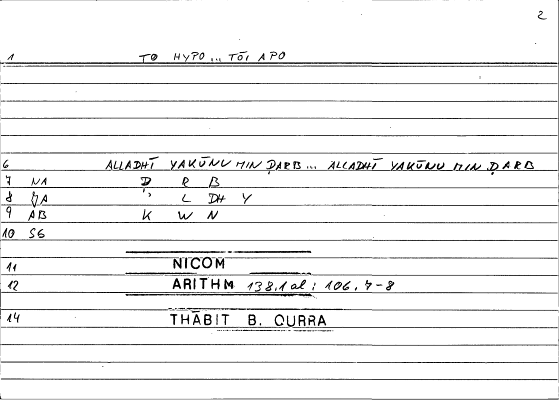 2
1 TO HYPO... TŌI APO
6 ALLADHĪ YAKŪNU MIN ḌARB... ALLADHĪ YAKŪNU MIN ḌARB
7 NA Ḍ R B
8 L DH Y
9 AB K W N
10 SG
11 NICOM
12 ARITHM 138,1 al; 106, 7-8
14 THĀBIT B. QURRA